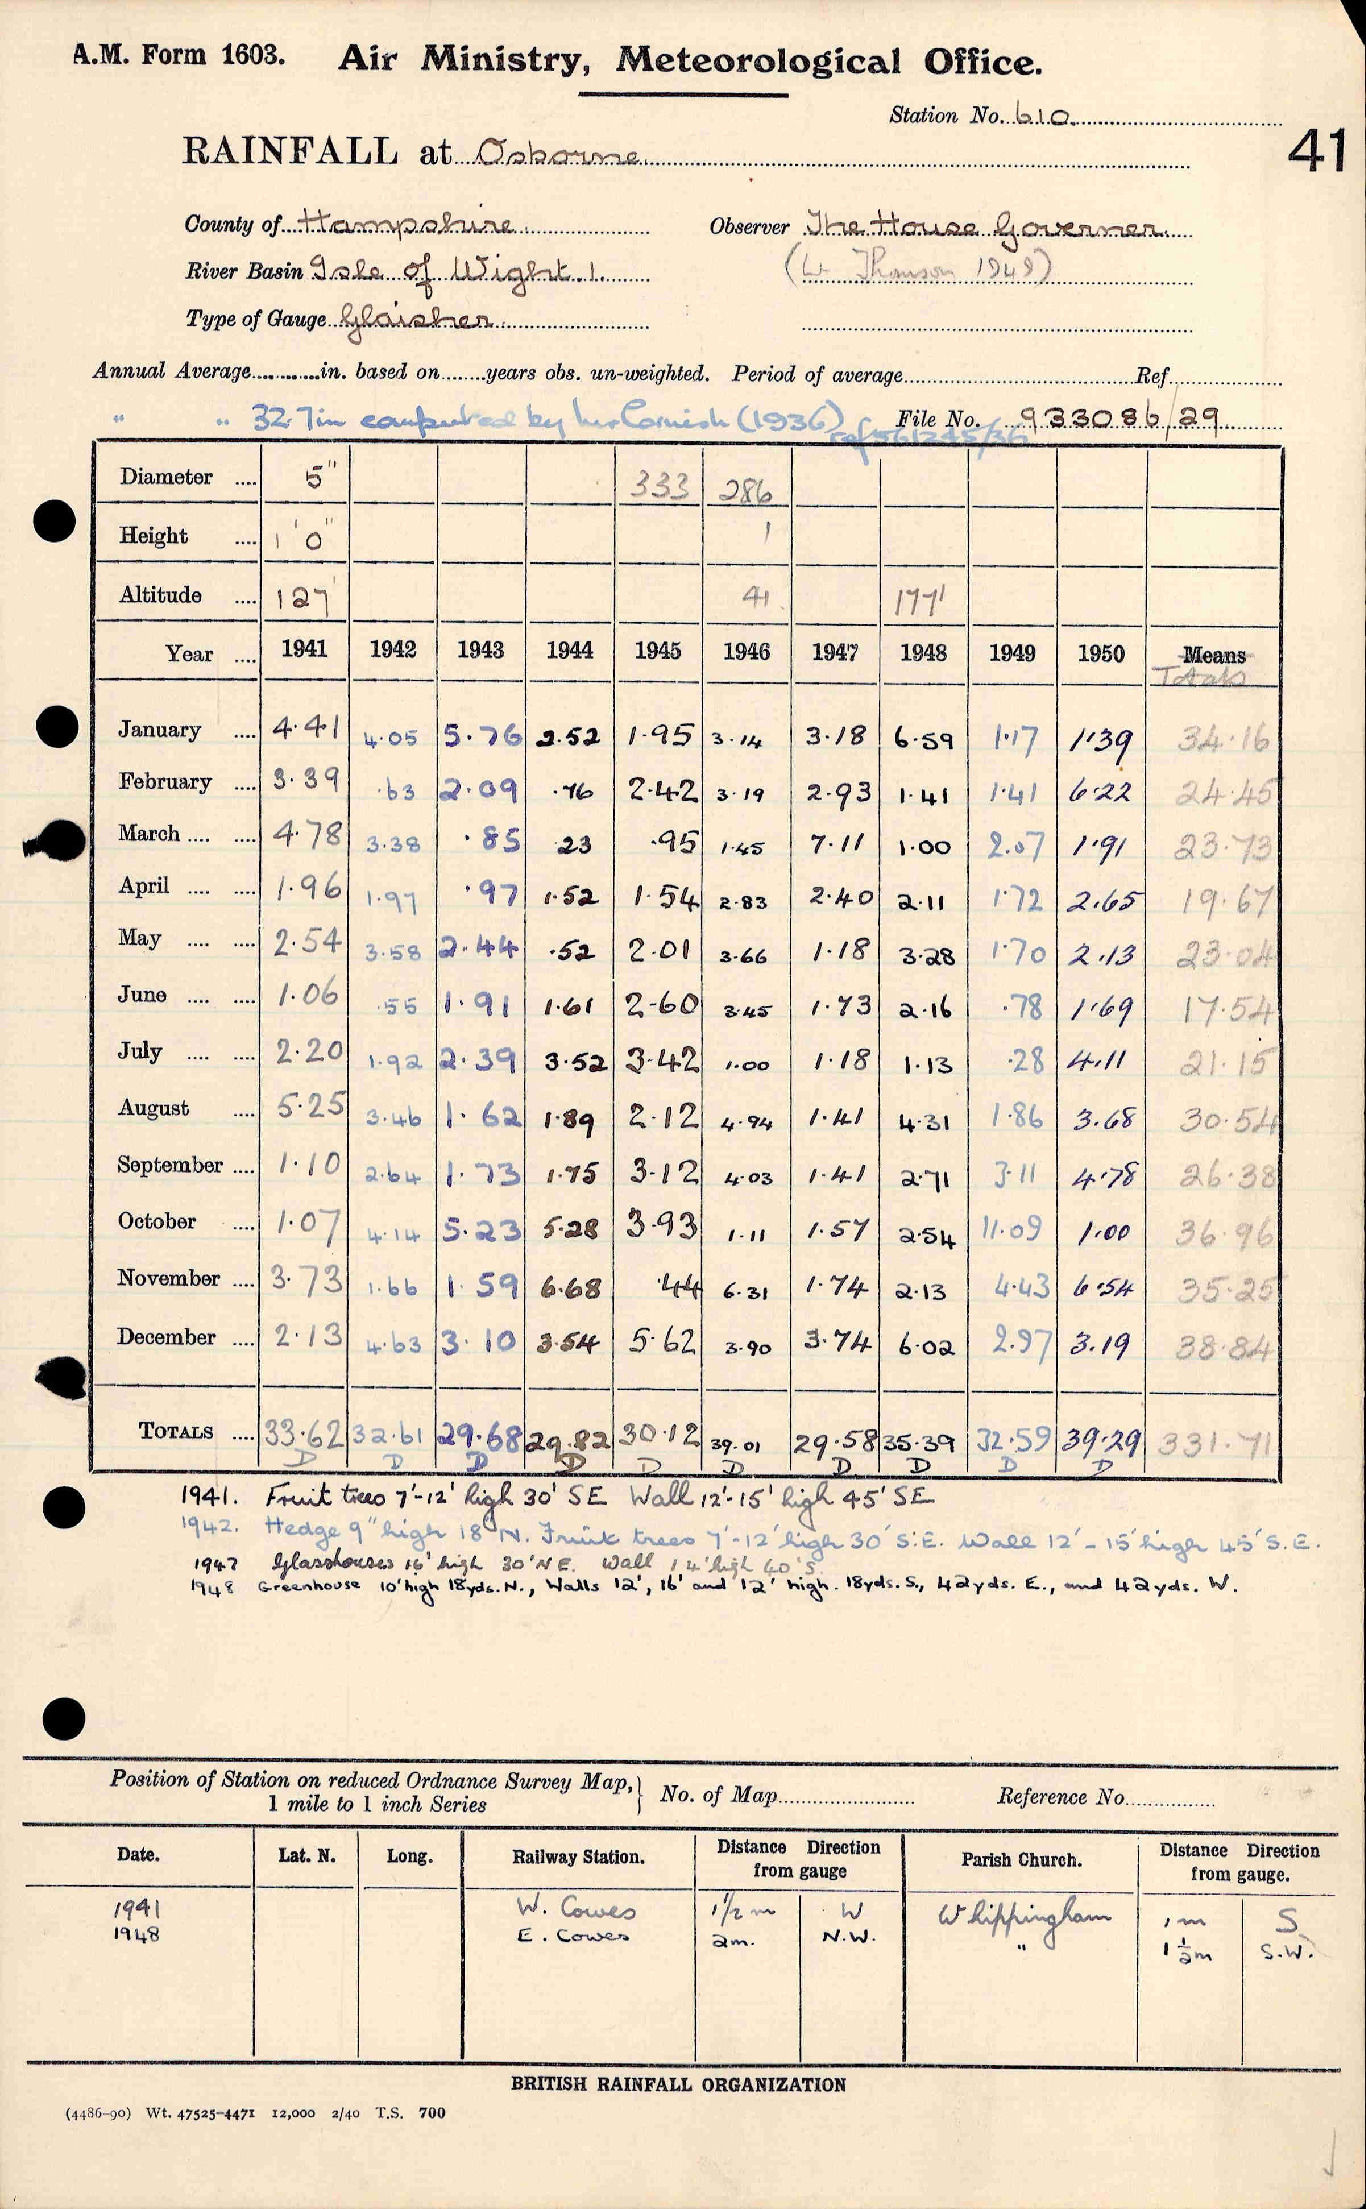 A.M. Form 1603. Air Ministry, Meteorological Office.
Station No. 610
41
RAINFALL at Osborne
County of Hampshire Observer The House Governer.
River Basin Isle of Wight 1. ( Thomson 1948)
Type of Gauge Glaisher
Annual Average in. based on years obs. un-weighted. Period of average Ref
" " 32.7in computed by Mr Cornish (1936) File No. 933086/29
ref 561245/36
Diameter .... 5" 333 286
Height .... 1'0" 1
Altitude .... 127 41 177'
Year .... 1941 1942 1943 1944 1945 1946 1947 1948 1949 1950 Means
Totals
January .... 4.41 4.05 5.76 2.52 1.95 3.14 3.18 6.59 1.17 1.39 34.16
February .... 3.39 .63 2.09 .76 2.42 3.19 2.93 1.41 1.41 6.22 24.45
March .... .... 4.78 3.38 .85 .23 .95 1.45 7.11 1.00 2.07 1.91 23.73
April .... .... 1.96 1.97 .97 1.52 1.54 2.83 2.40 2.11 1.72 2.65 19.67
May .... .... 2.54 3.58 2.44 .52 2.01 3.66 1.18 3.28 1.70 2.13 23.04
June .... .... 1.06 .55 1.91 1.61 2.60 3.45 1.73 2.16 .78 1.69 17.54
July .... .... 2.20 1.92 2.39 3.52 3.42 1.00 1.18 1.13 .28 4.11 21.15
August .... 5.25 3.46 1.62 1.89 2.12 4.94 1.41 4.31 1.86 3.68 30.54
September .... 1.10 2.64 1.73 1.75 3.12 4.03 1.41 2.71 3.11 4.78 26.38
October .... 1.07 4.14 5.23 5.28 3.93 1.11 1.57 2.54 11.09 1.00 36.96
November .... 3.73 1.66 1.59 6.68 .44 6.31 1.74 2.13 4.43 6.54 35.25
December .... 2.13 4.63 3.10 3.54 5.62 3.90 3.74 6.02 2.97 3.19 38.84
TOTALS .... 33.62 32.61 29.68 29.82 30.12 39.01 29.58 35.39 32.59 39.29 331.71
D D D D D D D D D D
1941. Fruit trees 7'-12' high 30' SE Wall 12'-15' high 45' SE
1942. Hedge 9" high 18' N. Fruit trees 7'-12' high 30' S.E. Wall 12'-15' high 45' S.E.
1947 Glasshouses 16' high 30' NE. Wall 14' high 60' S.
1948 Greenhouse 10' high 18yds. N., Walls 12', 16' and 12' high. 18yds. S., 42yds. E., and 42yds. W.
Position of Station on reduced Ordnance Survey Map, 1 mile to 1 inch Series } No. of Map Reference No.
Date. Lat. N. Long. Railway Station. Distance Direction from gauge Parish Church. Distance Direction from gauge.
1941 W. Cowes 1 1/2 m W Whippingham 1 m S
1948 E. Cowes 2m. N.W. " 1 1/2 m S.W.
BRITISH RAINFALL ORGANIZATION
(4486-90) Wt. 47525-4471 12,000 2/40 T.S. 700